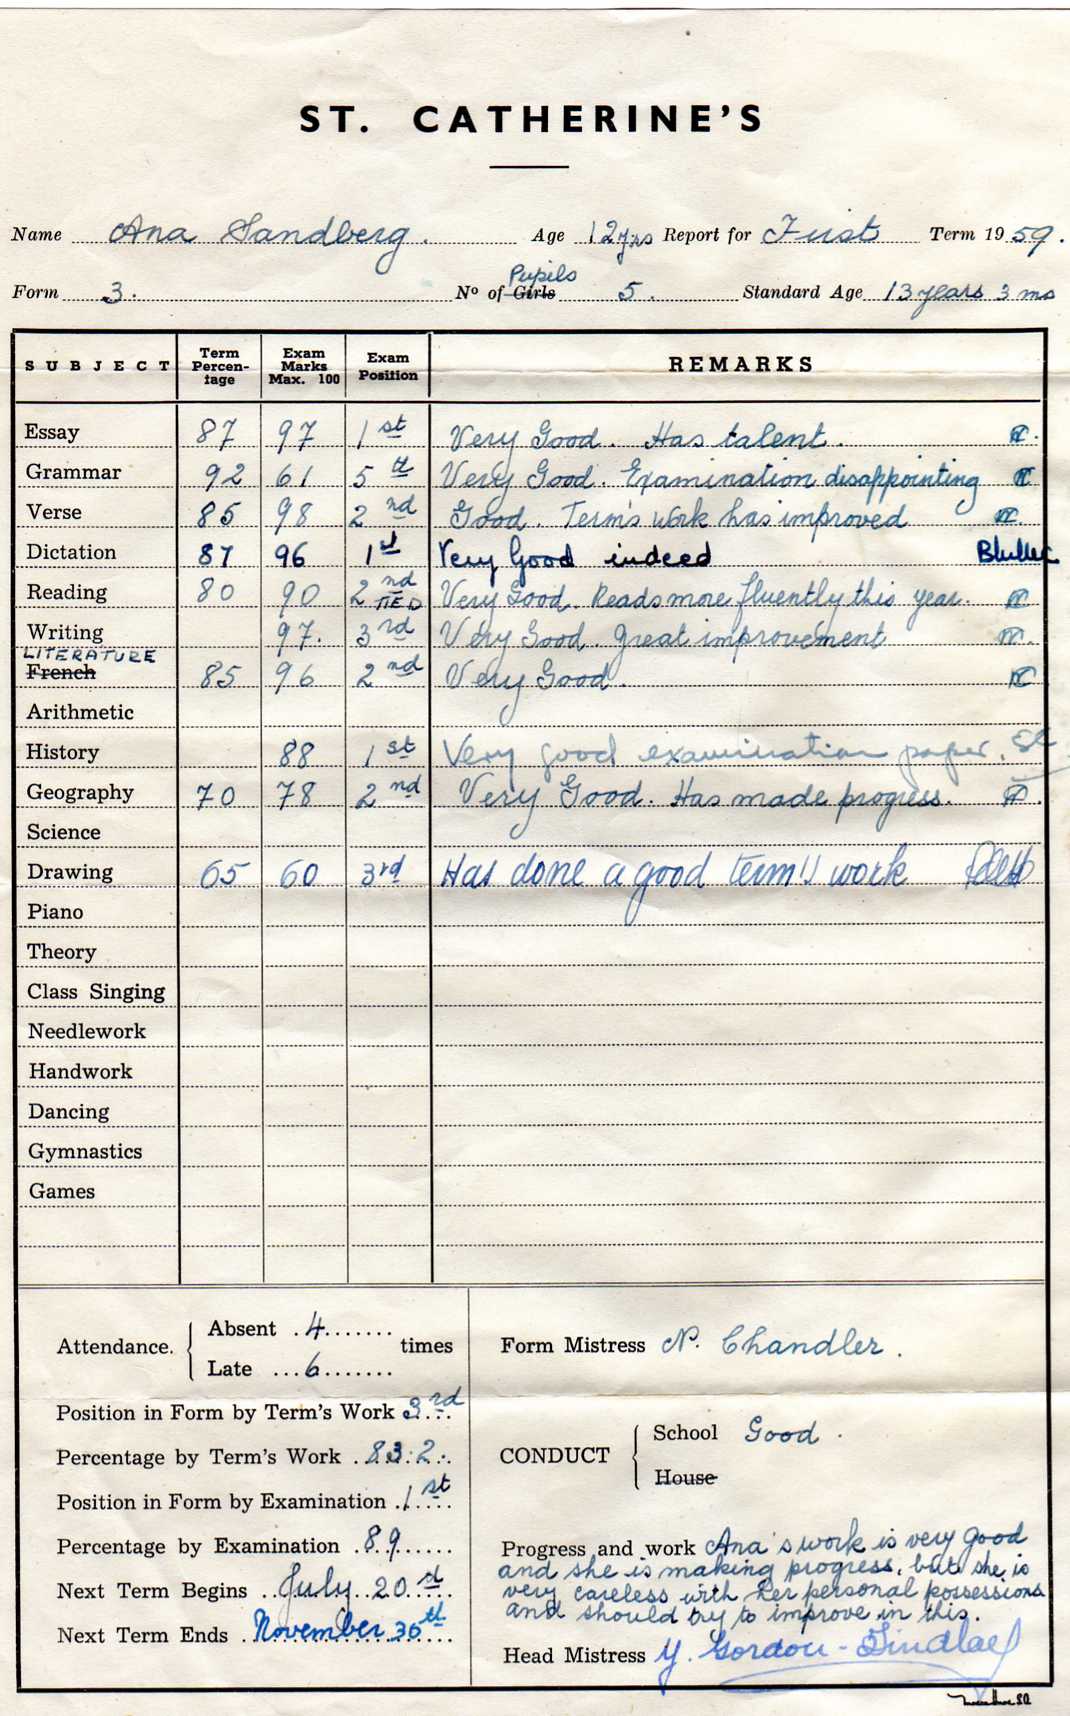 ST. CATHERINE'S
Name Ana Sandberg. Age 12yrs Report for First Term 19 59.
Pupils
Form 3. No of Girls 5. Standard Age 13 years 3 ms
SUBJECT Term Percentage Exam Marks Max. 100 Exam Position REMARKS
Essay 87 97 1st Very Good. Has talent.
Grammar 92 61 5th Very Good. Examination disappointing
Verse 85 98 2nd Good. Term's work has improved
Dictation 87 96 1st Very Good indeed
Reading 80 90 2nd TIED Very Good. Reads more fluently this year.
Writing 97. 3rd Very Good. Great improvement
LITERATURE
French 85 96 2nd Very Good.
Arithmetic
History 88 1st Very good examination paper.
Geography 70 78 2nd Very Good. Has made progress.
Science
Drawing 65 60 3rd Has done a good term's work
Piano
Theory
Class Singing
Needlework
Handwork
Dancing
Gymnastics
Games
Attendance. Absent 4 times
Late 6
Position in Form by Term's Work 3rd
Percentage by Term's Work 83.2.
Position in Form by Examination 1st
Percentage by Examination 89
Next Term Begins July 20
Next Term Ends November 30th
Form Mistress N. Chandler.
CONDUCT School Good.
House
Progress and work Ana's work is very good
and she is making progress, but she is
very careless with her personal possessions
and should try to improve in this.
Head Mistress Y. Gordon-Findlay